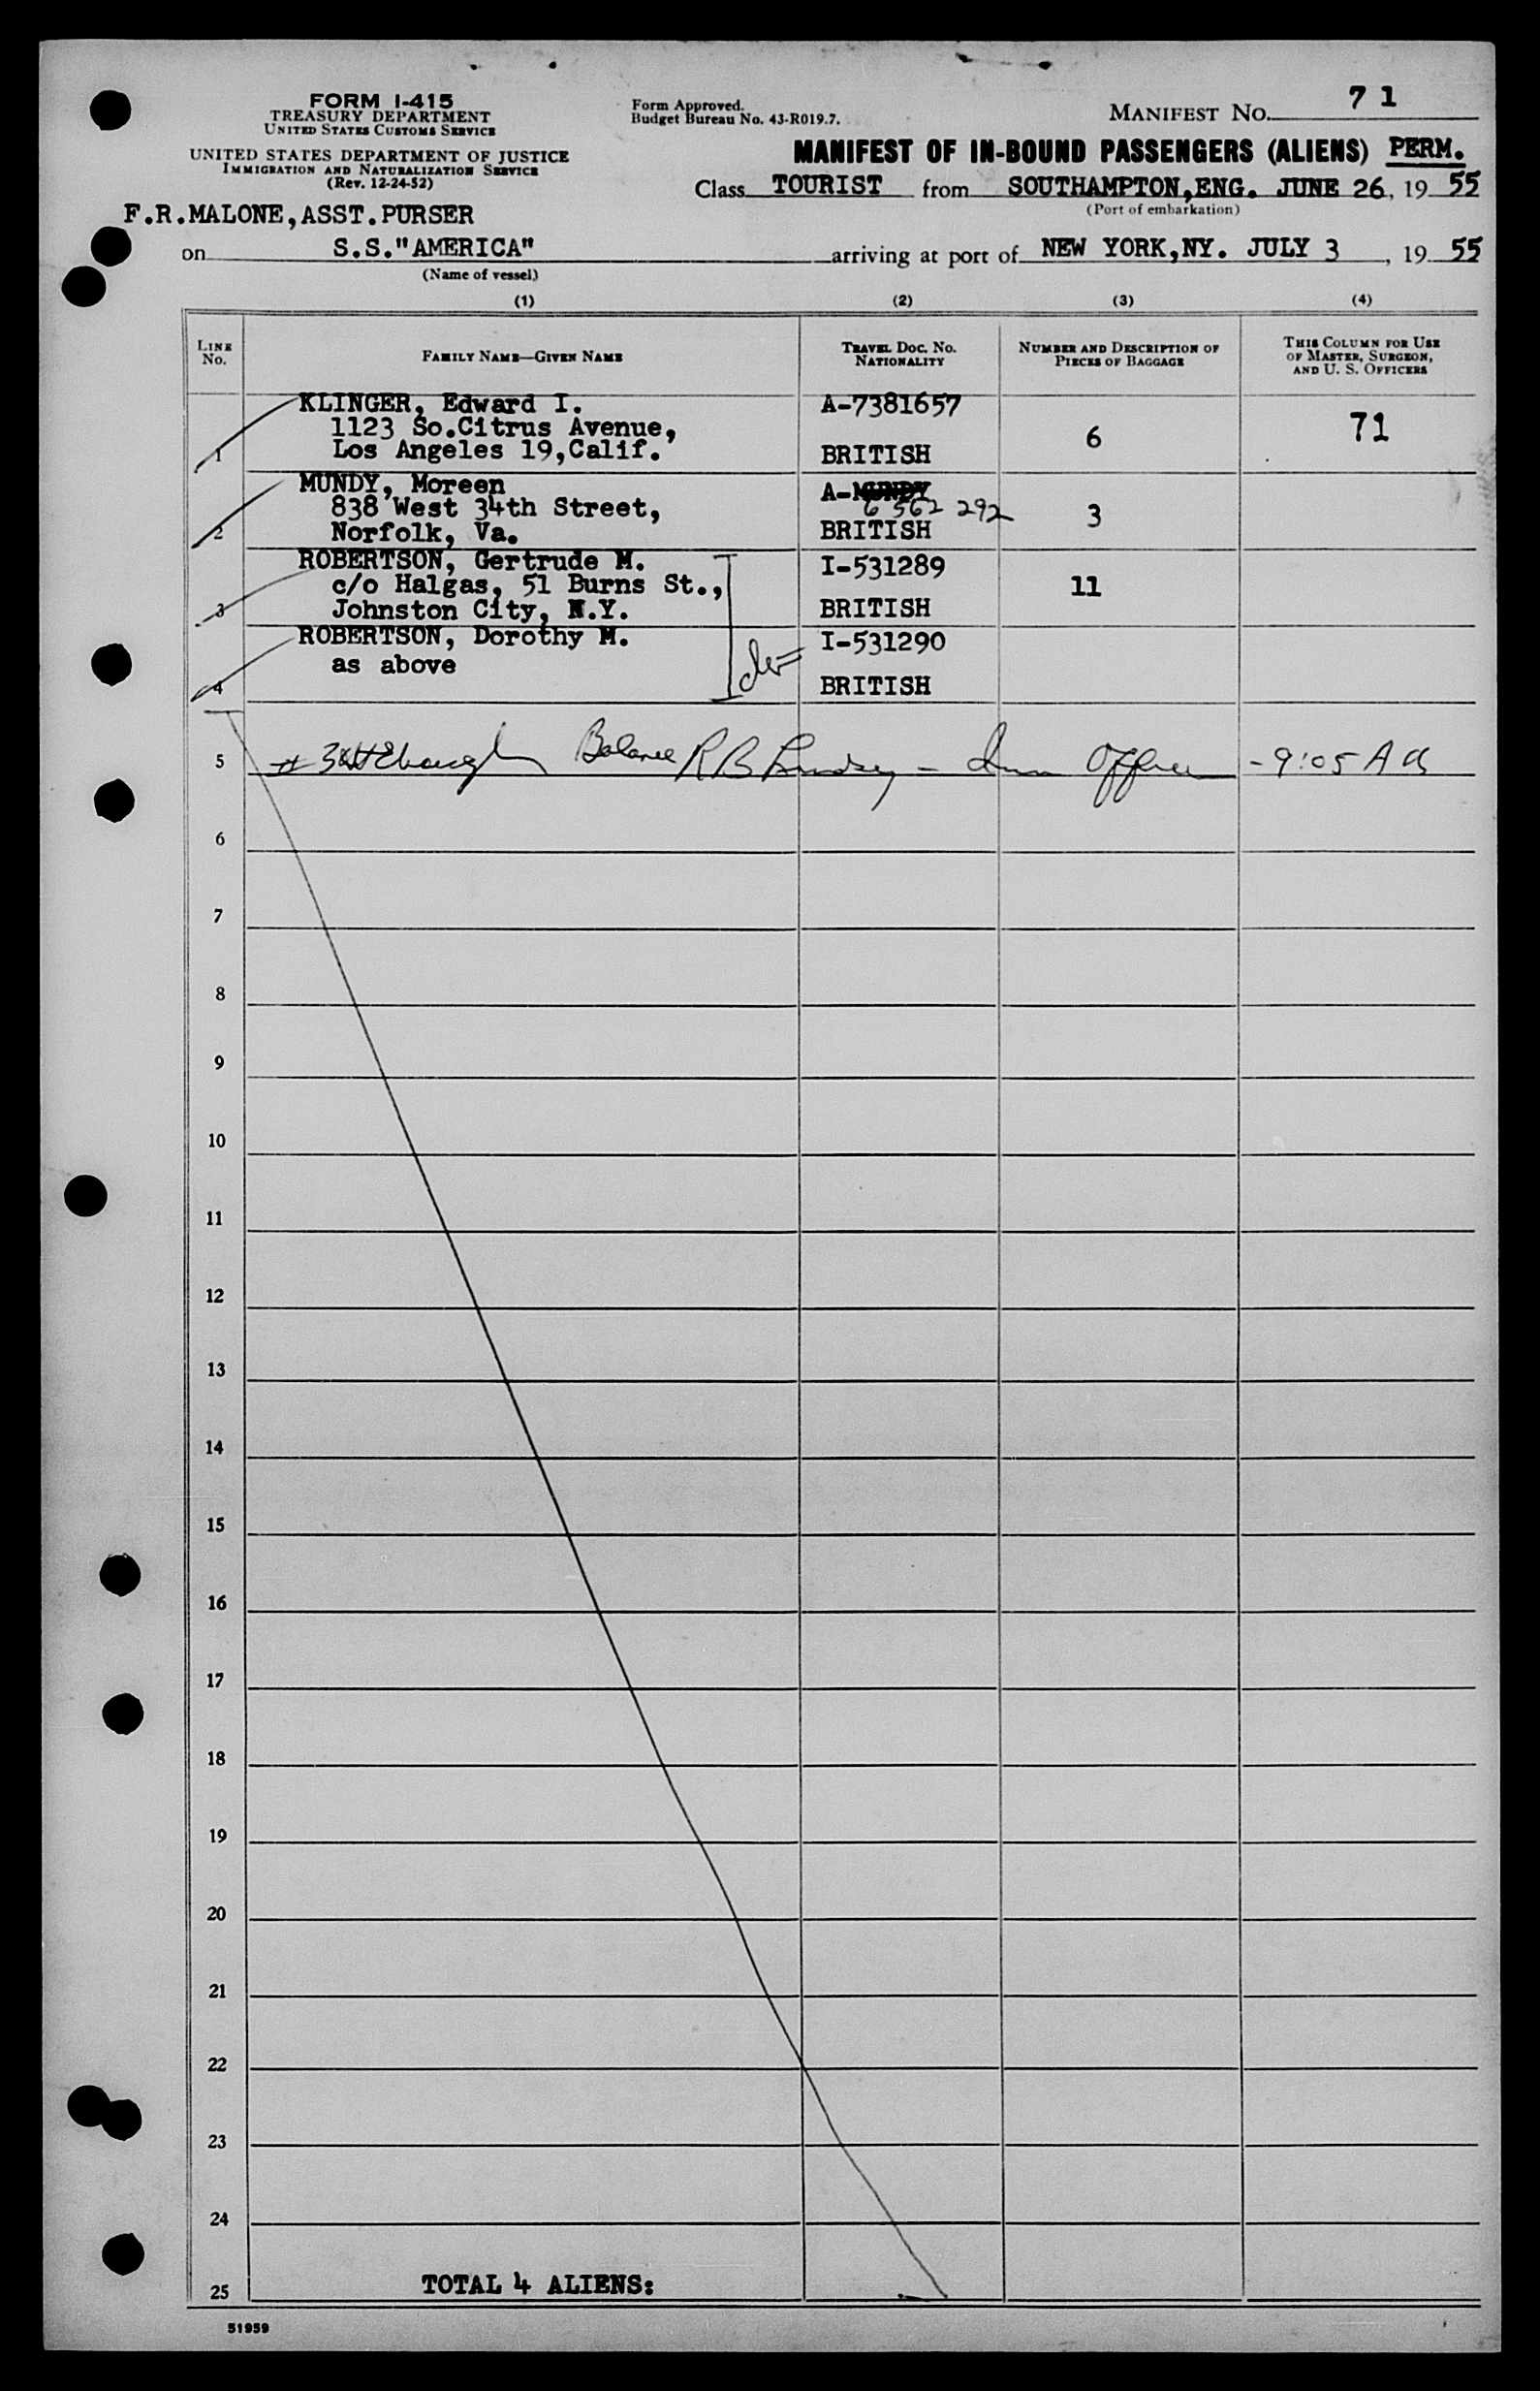 FORM I-415
TREASURY DEPARTMENT
UNITED STATES CUSTOMS SERVICE
UNITED STATES DEPARTMENT OF JUSTICE
IMMIGRATION AND NATURALIZATION SERVICE
(Rev. 12-24-52)
Form Approved.
Budget Bureau No. 43-R019.7.
MANIFEST NO. 7 1
MANIFEST OF IN-BOUND PASSENGERS (ALIENS) PERM.
Class TOURIST from SOUTHAMPTON, ENG. JUNE 26, 19 55
(Port of embarkation)
F.R.MALONE, ASST. PURSER
on S.S."AMERICA" arriving at port of NEW YORK, NY. JULY 3, 19 55
(Name of vessel)
(1) (2) (3) (4)
LINE No. FAMILY NAME—GIVEN NAME TRAVEL DOC. NO. NATIONALITY NUMBER AND DESCRIPTION OF PIECES OF BAGGAGE THIS COLUMN FOR USE OF MASTER, SURGEON, AND U. S. OFFICERS
KLINGER, Edward I. A-7381657
1123 So.Citrus Avenue, 6 71
1 Los Angeles 19,Calif. BRITISH
MUNDY, Moreen A-
838 West 34th Street, 6 562 292 3
2 Norfolk, Va. BRITISH
ROBERTSON, Gertrude M. I-531289
c/o Halgas, 51 Burns St., 11
3 Johnston City, N.Y. BRITISH
ROBERTSON, Dorothy M. I-531290
as above
4 BRITISH
5 # 3&4 Balance R B Lindsey - Imm Officer - 9:05 A M
6
7
8
9
10
11
12
13
14
15
16
17
18
19
20
21
22
23
24
25 TOTAL 4 ALIENS:
51959